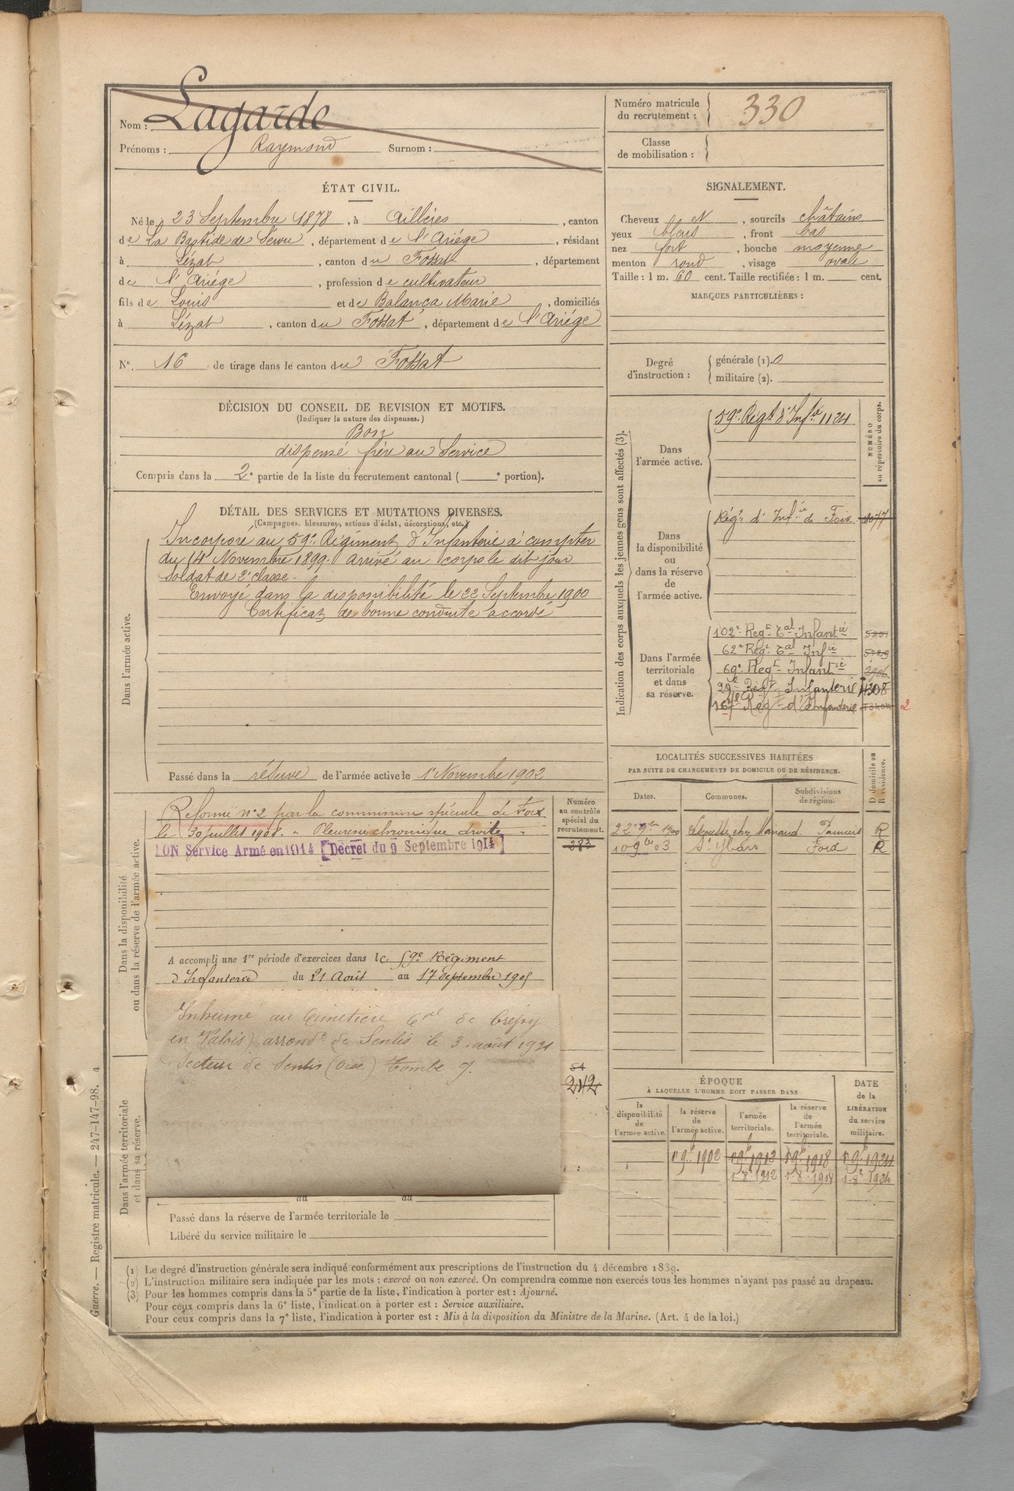 Nom : Lagarde
Prénoms : Raymond Surnom :
Numéro matricule du recrutement : 330
Classe de mobilisation :
ÉTAT CIVIL.
Né le 23 Septembre 1878, à Aillères, canton
de La Bastide de Serou, département de l'Ariège, résidant
à Lézat, canton du Fossat, département
de l'Ariège, profession de cultivateur
fils de Louis et de Balança Marie, domiciliés
à Lézat, canton du Fossat, département de l'Ariège
N° 16 de tirage dans le canton du Fossat
SIGNALEMENT.
Cheveux et, sourcils châtains
yeux bleus, front bas
nez fort, bouche moyenne
menton rond, visage ovale
Taille : 1 m. 60 cent. Taille rectifiée : 1 m. cent.
MARQUES PARTICULIÈRES :
Degré d'instruction : générale (1). 0
militaire (2).
DÉCISION DU CONSEIL DE REVISION ET MOTIFS.
(Indiquer la nature des dispenses.)
Bon
dispensé frère au Service
Compris dans la 2e partie de la liste du recrutement cantonal ( e portion).
DÉTAIL DES SERVICES ET MUTATIONS DIVERSES.
(Campagnes, blessures, actions d'éclat, décorations, etc.)
Dans l'armée active.
Incorporé au 59e Régiment d'Infanterie à compter
du 14 Novembre 1899. arrivé au corps le dit jour
soldat de 2e classe.
Envoyé dans la disponibilité le 22 Septembre 1900
Certificat de bonne conduite accordé
Passé dans la réserve de l'armée active le 1 Novembre 1902
Dans la disponibilité ou dans la réserve de l'armée active.
Numéro au contrôle spécial du recrutement.
Réformé n° 2 par la commission spéciale de Foix
le 30 juillet 1908. " Pleurésie chronique droite "
283
Service Armé en 1914 [Décret du 9 Septembre 1914]
A accompli une 1re période d'exercices dans le 59e Régiment
d'Infanterie du 21 Août au 17 Septembre 1905
Inhumé au Cimetière de Crépy
en Valois) arrondt de Senlis le 3 août 1921
Secteur de Senlis (Oise) Tombe 7.
54
242
Dans l'armée territoriale et dans sa réserve.
du au
Passé dans la réserve de l'armée territoriale le
Libéré du service militaire le
Indication des corps auxquels les jeunes gens sont affectés (3).
NUMÉRO au répertoire du corps.
Dans l'armée active.
59e Régt d'Infie 1121
Dans la disponibilité ou dans la réserve de l'armée active.
Régt d'Infie de Foix
Dans l'armée territoriale et dans sa réserve.
102e Régt Tal Infantie
62e Régt Tal Infie
69e Régt Infantie
29e Régt Infanterie 1308
167e Régt d'Infanterie
2
LOCALITÉS SUCCESSIVES HABITÉES
PAR SUITE DE CHANGEMENTS DE DOMICILE OU DE RÉSIDENCE.
Dates. Communes. Subdivisions de région. D. domicile ou R. résidence.
22 9bre 1900 chez Manaud Pamiers R
10 9bre 03 St Ybars R
ÉPOQUE
À LAQUELLE L'HOMME DOIT PASSER DANS
la disponibilité de l'armée active. la réserve de l'armée active. l'armée territoriale. la réserve de l'armée territoriale. DATE de la LIBÉRATION du service militaire.
1 9bre 1902 1 9bre 1912 1 9bre 1918 1 9bre 1924
1-8-1912 1-8-1918 1-8-1924
(1) Le degré d'instruction générale sera indiqué conformément aux prescriptions de l'instruction du 4 décembre 1889.
(2) L'instruction militaire sera indiquée par les mots : exercé ou non exercé. On comprendra comme non exercés tous les hommes n'ayant pas passé au drapeau.
(3) Pour les hommes compris dans la 5e partie de la liste, l'indication à porter est : Ajourné.
Pour ceux compris dans la 6e liste, l'indication à porter est : Service auxiliaire.
Pour ceux compris dans la 7e liste, l'indication à porter est : Mis à la disposition du Ministre de la Marine. (Art. 4 de la loi.)
Guerre. — Registre matricule. — 247-147-98. 4